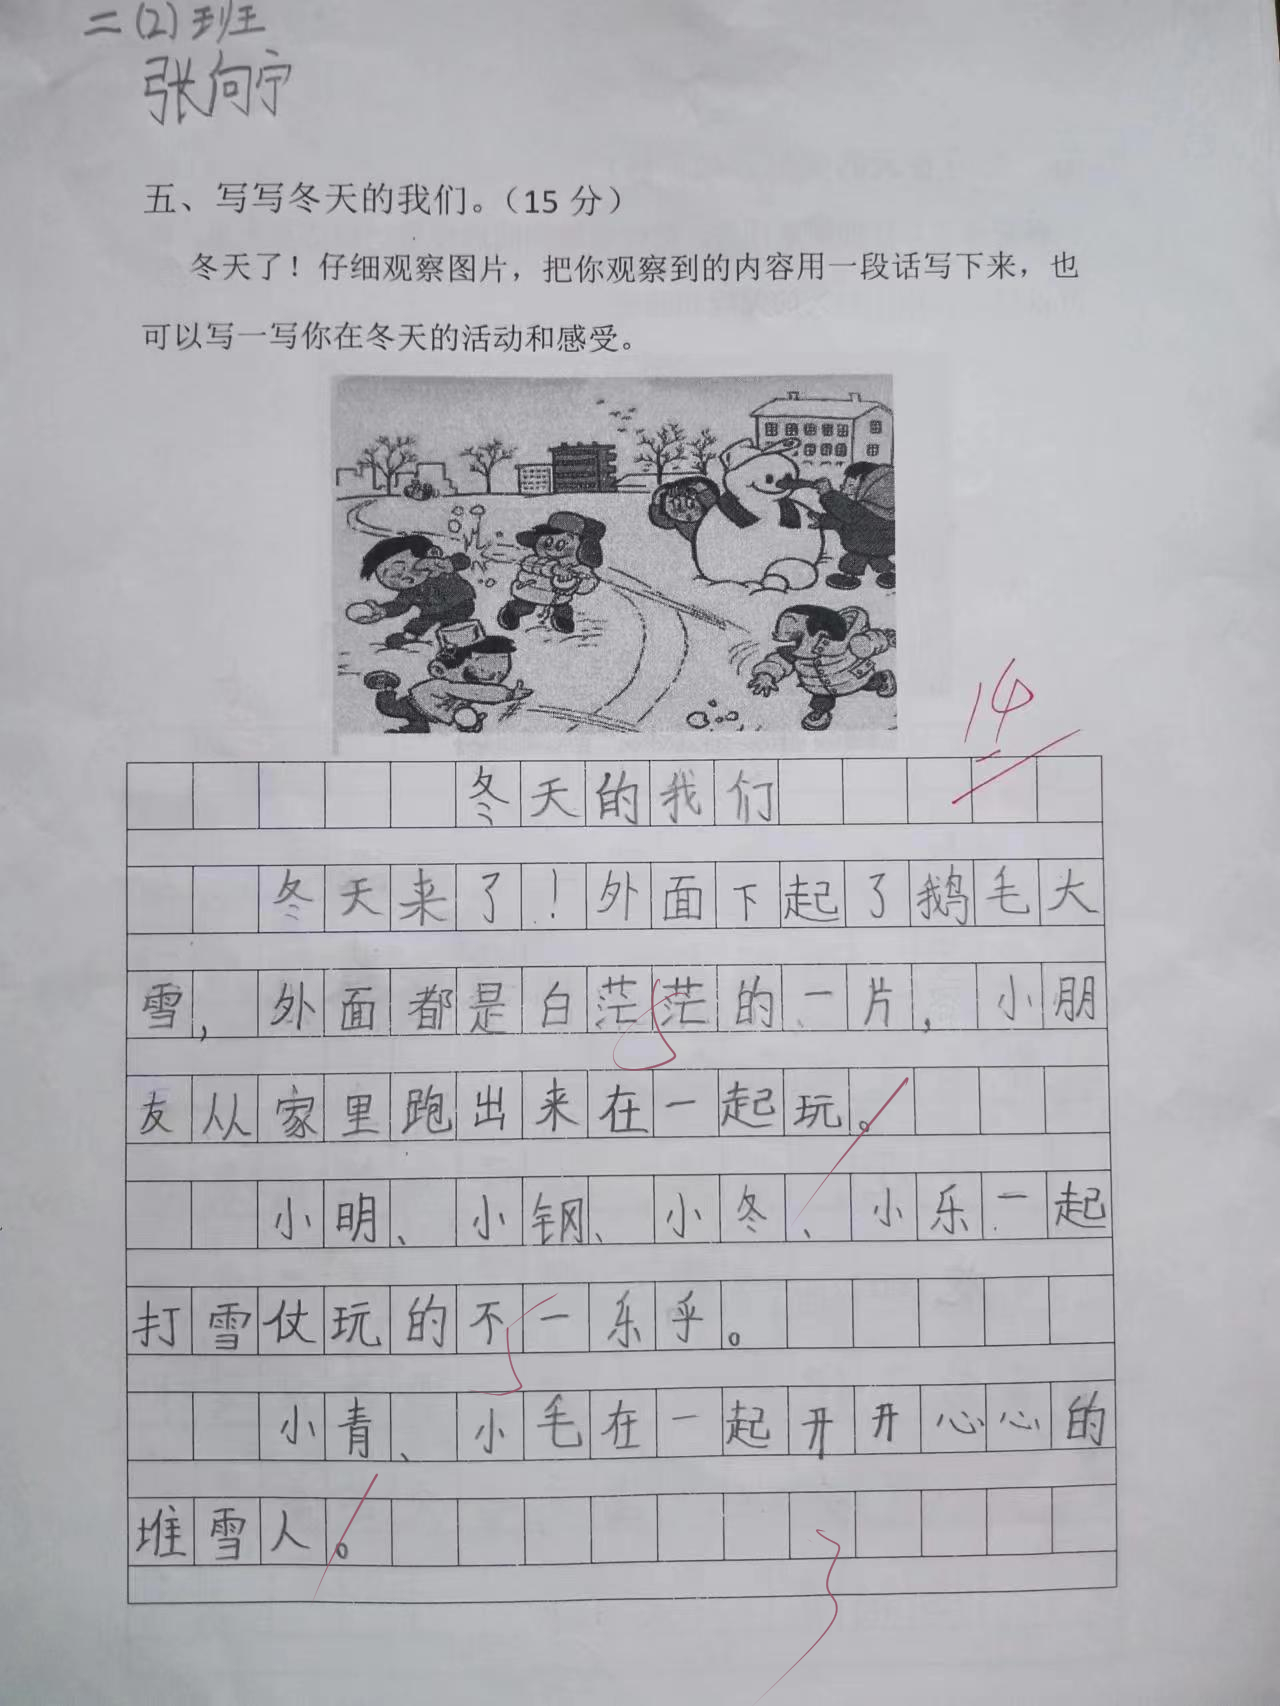 二(2)班
张向宁
五、写写冬天的我们。（15 分）
冬天了！仔细观察图片，把你观察到的内容用一段话写下来，也
可以写一写你在冬天的活动和感受。
14
冬天的我们
冬天来了！外面下起了鹅毛大
雪，外面都是白茫茫的一片，小朋
友从家里跑出来在一起玩。
小明、小钢、小冬、小乐一起
打雪仗玩的不一乐乎。
小青、小毛在一起开开心心的
堆雪人。